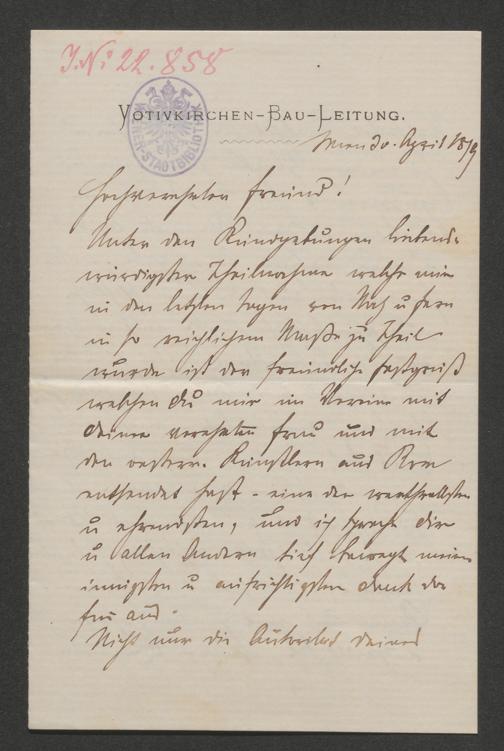 J.N: 22.858
WIENER-STADTBIBLIOTHEK
VOTIVKIRCHEN-BAU-LEITUNG.
Wien 30. April 1879
Hochverehrter Freund!
Unter den Kundgebungen liebens-
würdigster Theilnahme welche mir
in den letzten Tagen von Nah u fern
in so reichlichem Maße zu Theil
wurde ist der freundliche Festgruß
welchen Du mir im Vereine mit
Deiner verehrten Frau und mit
den oesterr. Künstlern aus Rom
entsendet hast - eine der werthvollsten
u ehrendsten, und ich spreche Dir
u allen Andern tief bewegt meinen
innigsten u aufrichtigsten Dank da
für aus.
Nicht nur die Autorität Deines